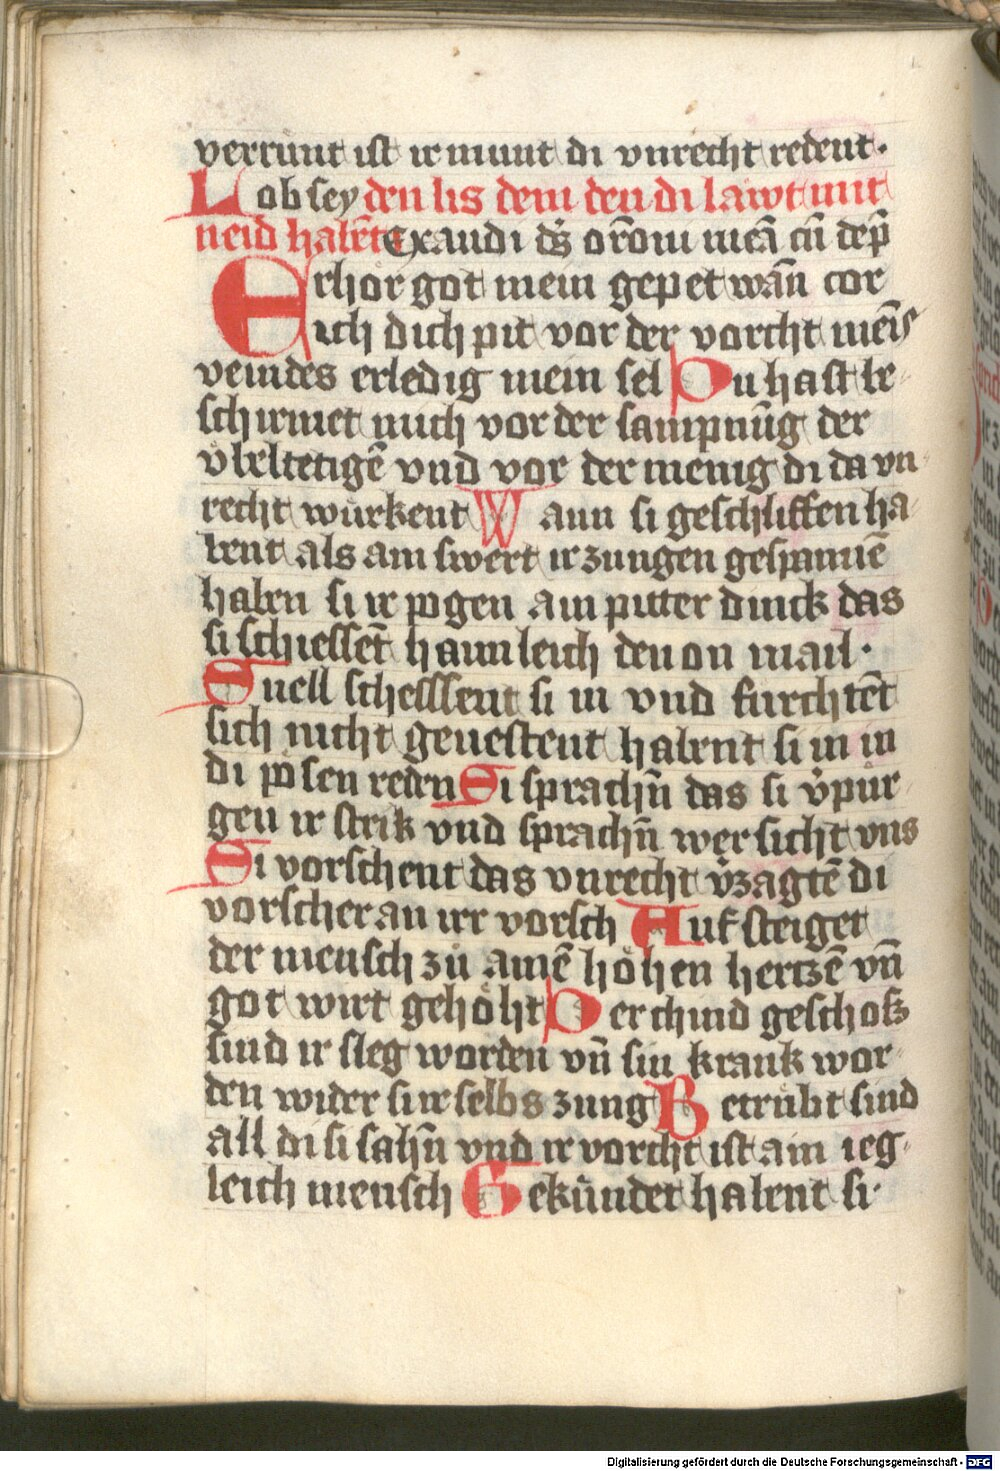 verrunt ist ir munt di vnrecht redent·
Lob sey den lis dem den di lawt mit
neid habn̄t Exaudi ds̄ or̄om meā cū dep̄
Erhör got mein gepet wān cor
ich dich pit vor der vorcht meīs
veindes erledig mein sel Du hast be-
schirmet mich vor der sampnūg der
vbeltetigē vnd vor der menig di da vn-
recht würkent Wann si geschliffen ha-
bent als am swert ir zungen gespannē
haben si ir pogen ain pitter dinck das
si schiessēt haimleich den on mail·
Snell schessent si in vnd furchtēt
sich nicht geuestent habent si in in
di pösen reden Si sprachn̄ das si v̓pür-
gen ir strik vnd sprachn̄ wer sicht vns
Si vorschent das vnrecht v̓zagtē di
vorscher an irr vorsch Auf steiget
der mensch zu ainē höhen hertzē vn̄
got wirt gehöht Der chind geschoß
sind ir sleg worden vn̄ sin krank wor-
den wider si ir selbs zung Betrübt sind
all di si sahn̄ vnd ir vorcht ist aim ieg-
leich mensch Gekündet habent si·
Digitalisierung gefördert durch die Deutsche Forschungsgemeinschaft - DFG